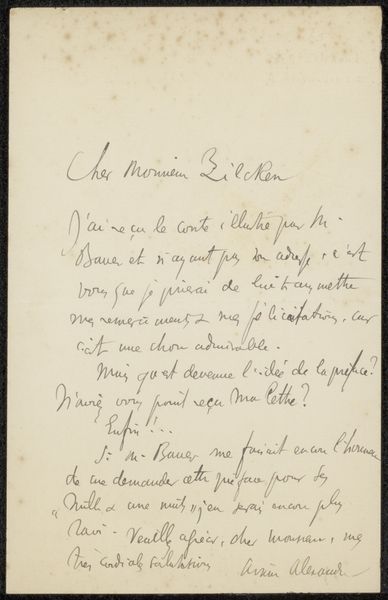 Cher Monsieur Zilcken
J'ai reçu le conte illustré par M.
Bauer et n'ayant pas son adresse, c'est
vous que je prierai de lui transmettre
mes remerciements & mes félicitations, car
c'est une chose admirable.
Mais qu'est devenue l'idée de la préface?
N'aviez vous point reçu ma lettre?
Enfin!...
Si M. Bauer me faisait encore l'honneur
de me demander cette préface pour ses
"Mille & une nuits" j'en serais encore plus
ravi - Veuillez agréer, cher monsieur, mes
très cordiales salutations
Arsène Alexandre